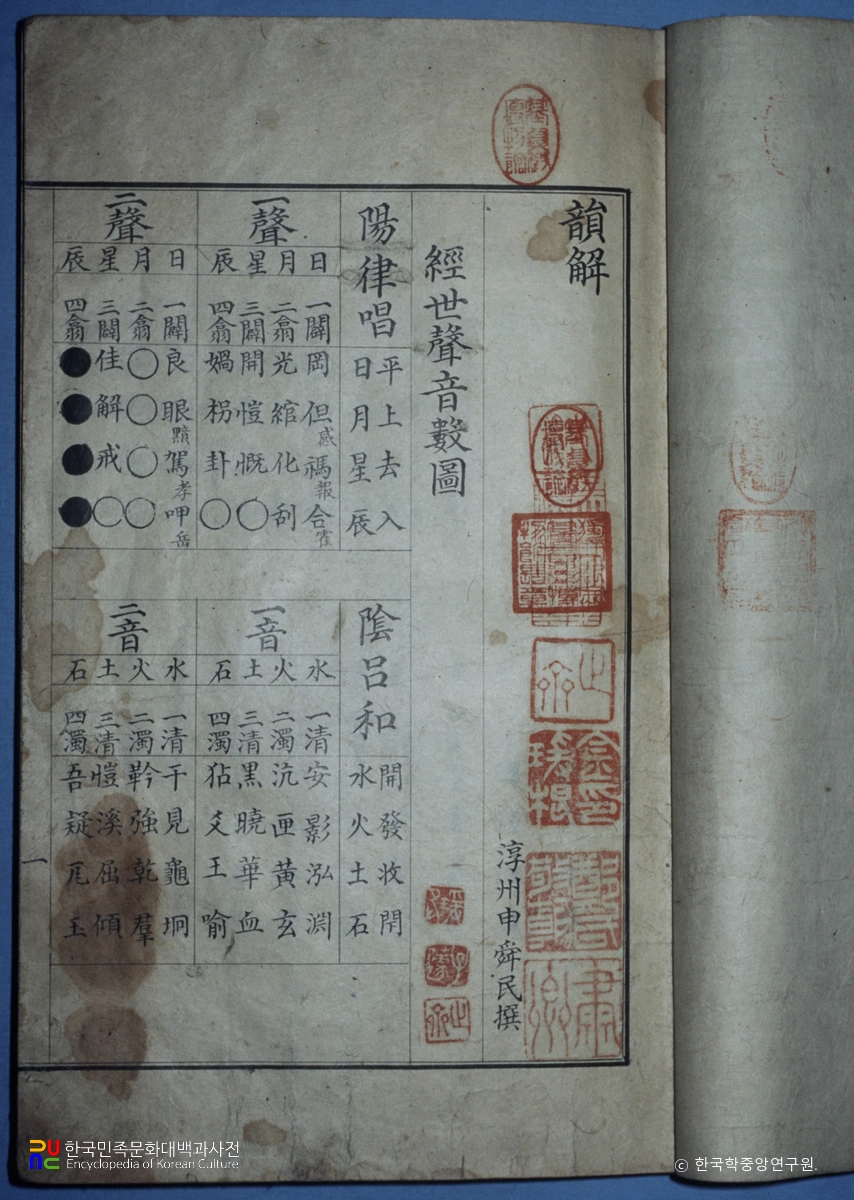 韻解
淳州申舜民撰
經世聲音數圖
陽律唱
平上去入
日月星辰
一聲
日月星辰
一闢岡但感禡報合霍
二翕光綰化刮
三闢開愷慨○
四翕媧枴卦○
二聲
日月星辰
一闢良眼駕孝呷岳
二翕○○○○
三闢佳解戒○
四翕●●●●
陰呂和
開發收閉
水火土石
一音
水火土石
一清安影泓淵
二濁沆匣黃玄
三清黑曉華血
四濁爻王喻
二音
水火土石
一清干見龜坰
二濁強乾羣
三清愷溪屈傾
四濁吾疑
一
한국민족문화대백과사전
Encyclopedia of Korean Culture
© 한국학중앙연구원.